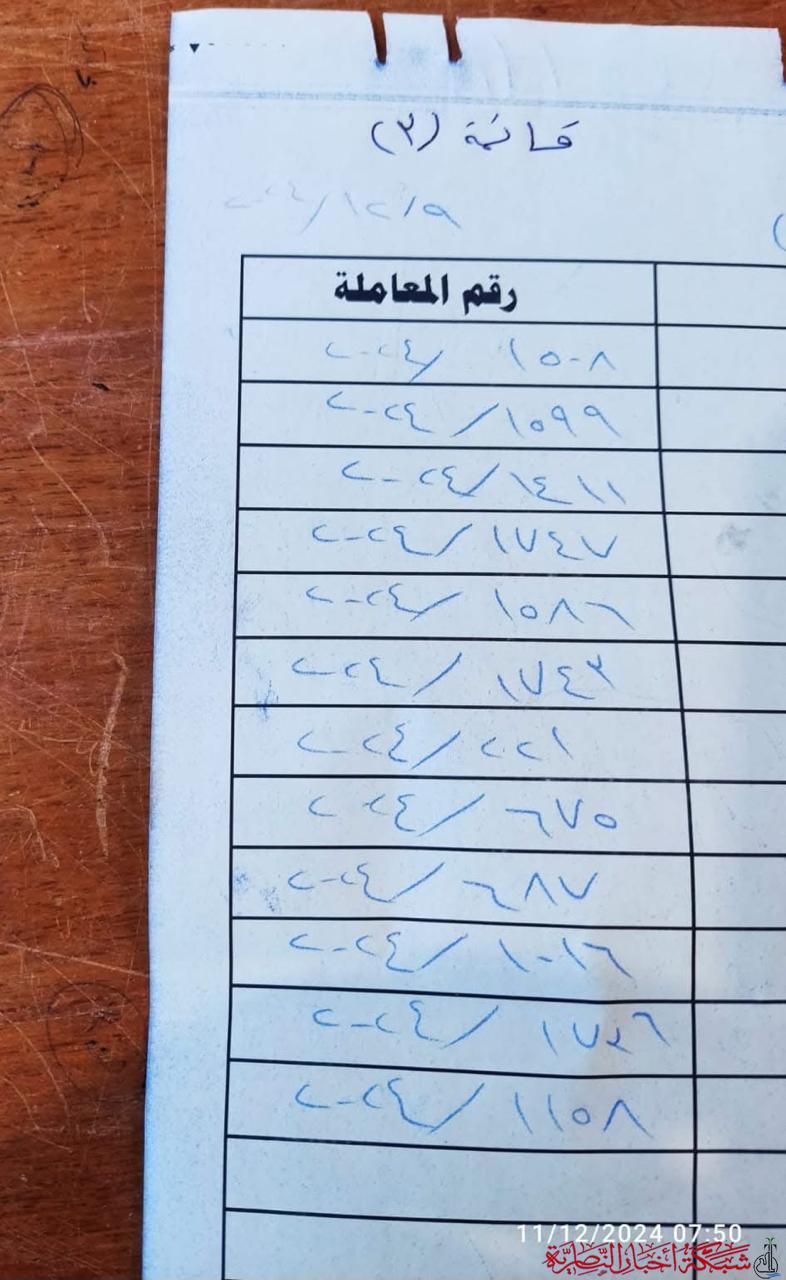 قائمة (٣)
٢٠٢٤/١٢/٩
رقم المعاملة
١٥٠٨ /٢٠٢٤
١٥٩٩/ ٢٠٢٤
١٤١١/٢٠٢٤
١٧٤٧/٢٠٢٤
١٥٨٦ /٢٠٢٤
١٧٤٣ /٢٠٢٤
٢٢١/٢٠٢٤
٦٧٥ /٢٠٢٤
٦٨٧ /٢٠٢٤
١٠١٦ /٢٠٢٤
١٧٢٦ /٢٠٢٤
١١٥٨ /٢٠٢٤
11/12/2024 07:50
شبكة أخبار الناصرية